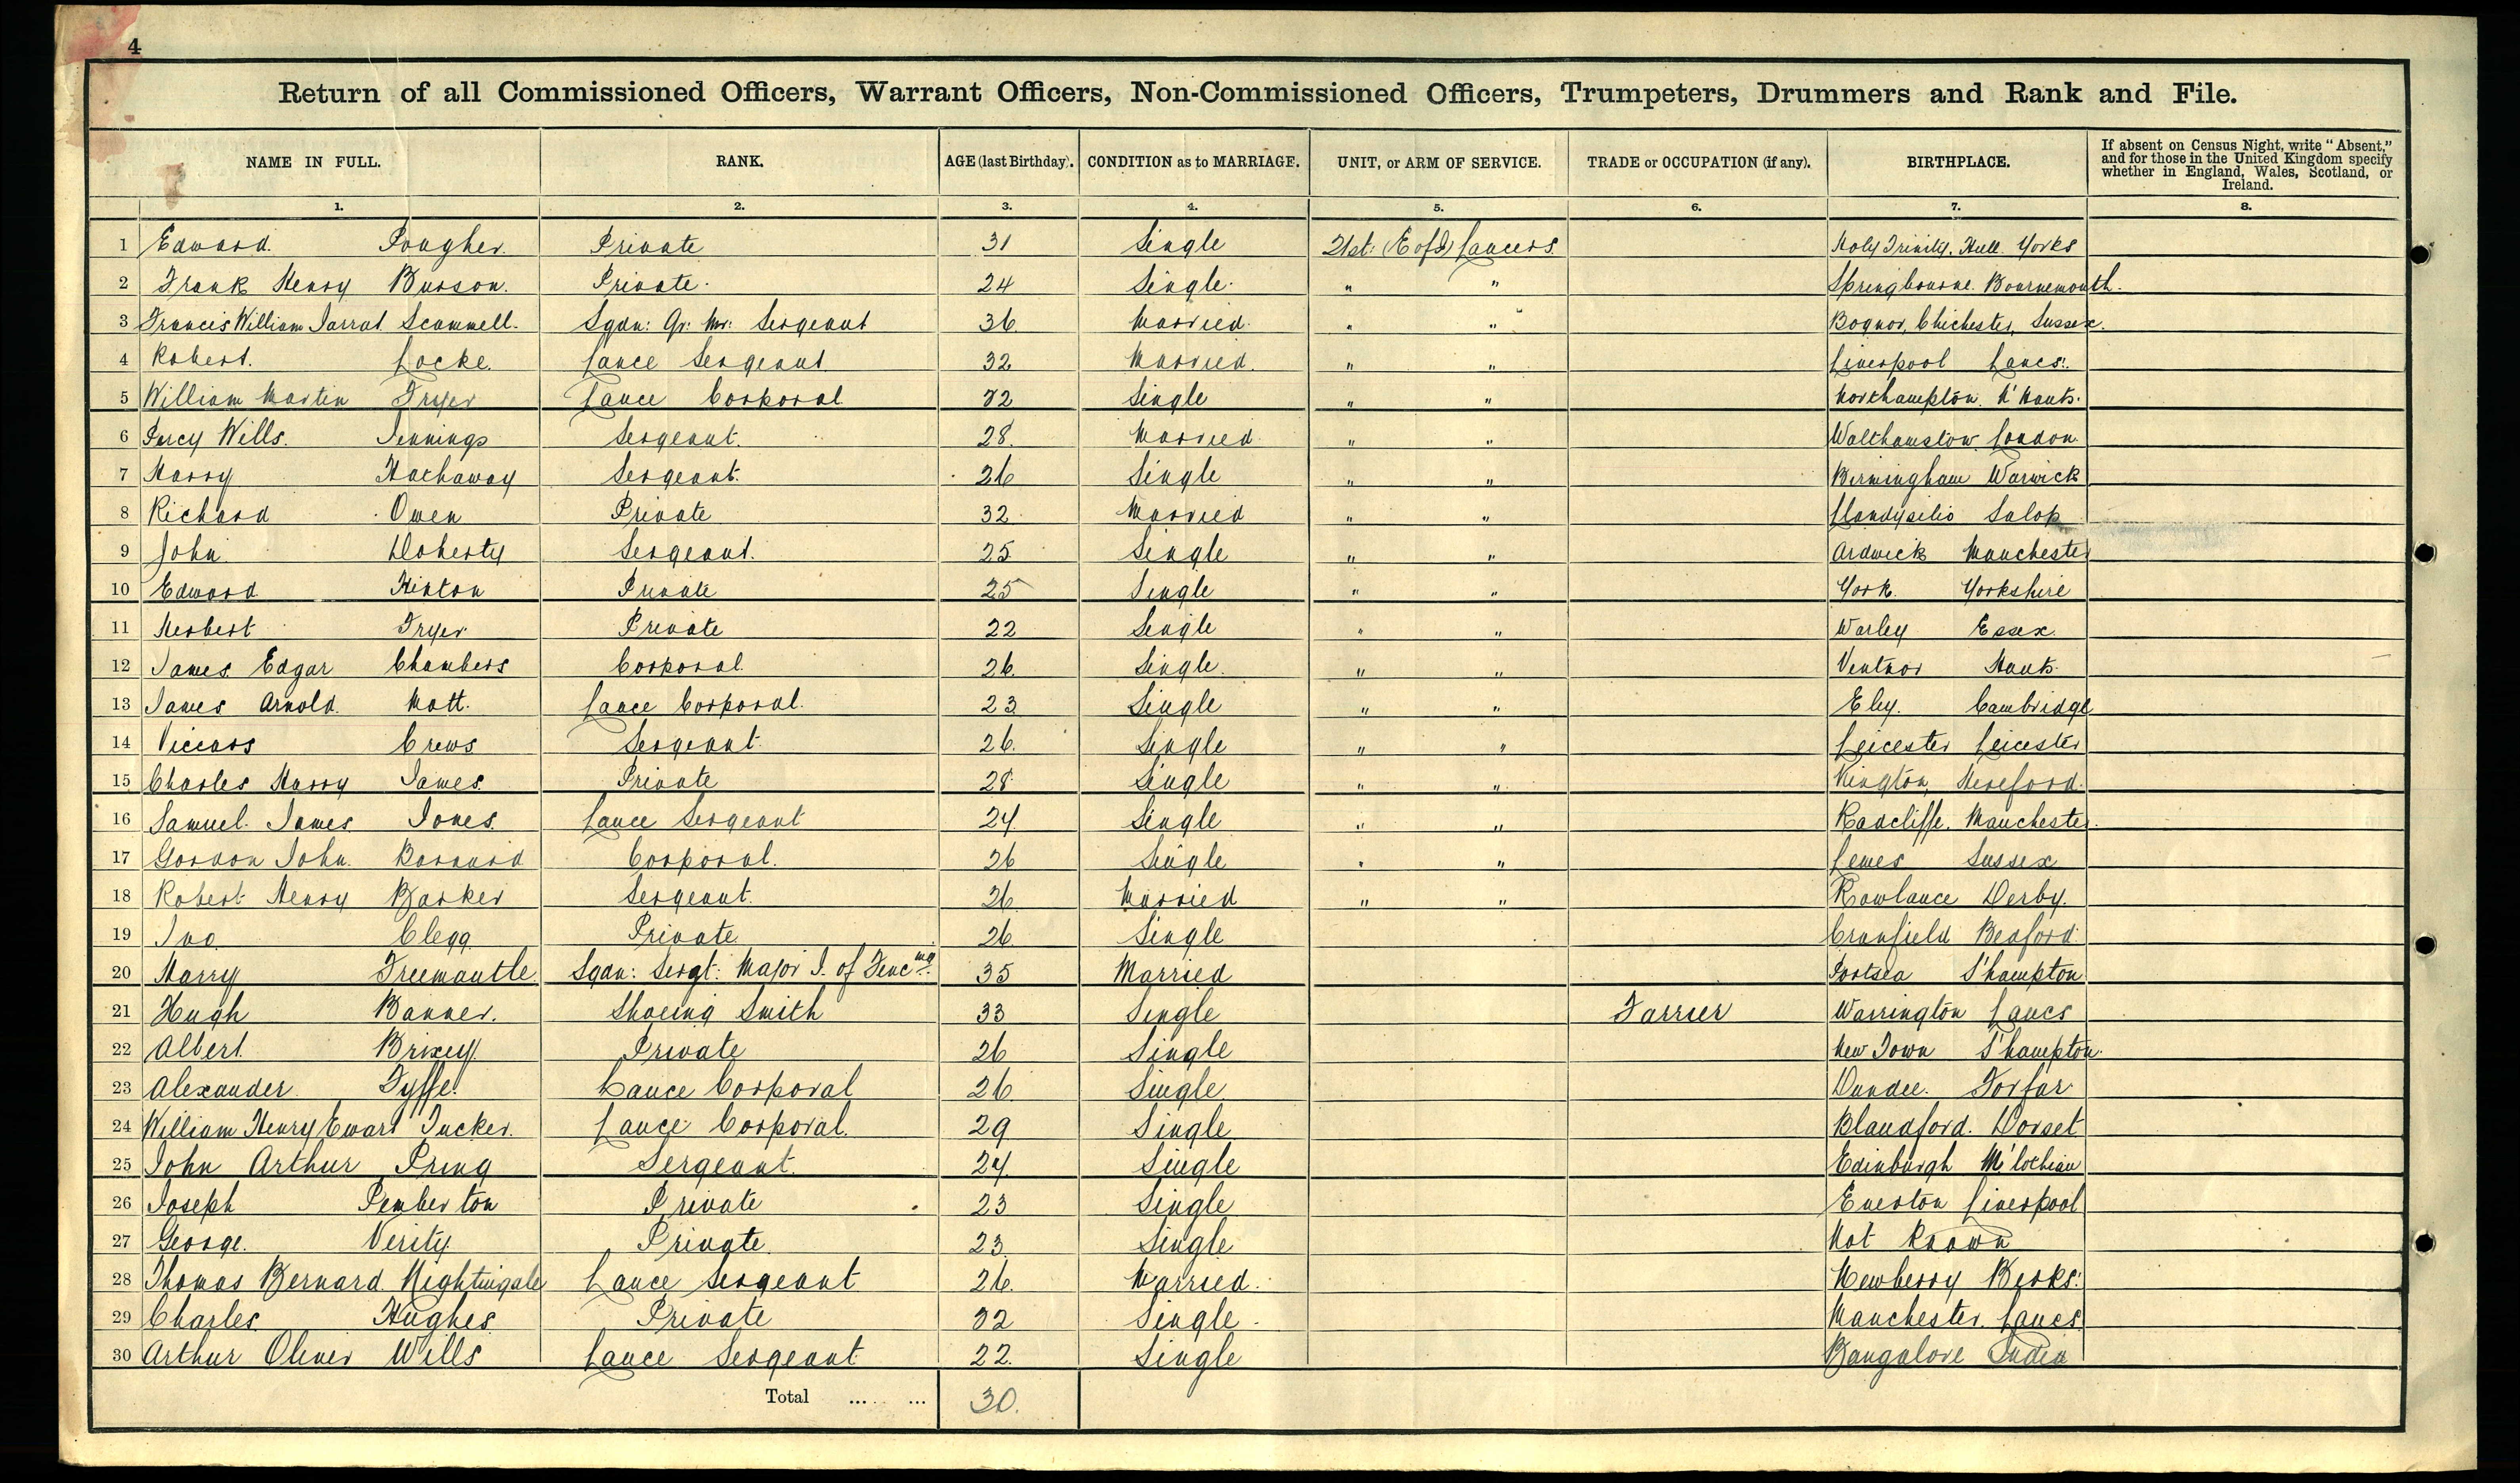 4
Return of all Commissioned Officers, Warrant Officers, Non-Commissioned Officers, Trumpeters, Drummers and Rank and File.
NAME IN FULL. RANK. AGE (last Birthday). CONDITION as to MARRIAGE. UNIT, or ARM OF SERVICE. TRADE or OCCUPATION (if any). BIRTHPLACE. If absent on Census Night, write "Absent," and for those in the United Kingdom specify whether in England, Wales, Scotland, or Ireland.
1. 2. 3. 4. 5. 6. 7. 8.
1 Edward. Pougher. Private 31 Single 21st: (E of I) Lancers. Holy Trinity. Hull. Yorks
2 Frank Henry Busson. Private. 24 Single. " " Springbourne. Bournemouth.
3 Francis William Jarrat Scammell. Sqdn: Qr: Mr: Sergeant 36 Married. " " Bognor, Chichester, Sussex.
4 Robert. Locke. Lance Sergeant 32 Married. " " Liverpool Lancs:.
5 William Martin Fryer Lance Corporal 32 Single " " Northampton. N'Hants.
6 Percy Wills. Jennings Sergeant. 28. Married. " " Walthamstow London.
7 Harry Hathaway Sergeant. 26 Single " " Birmingham Warwick
8 Richard Owen Private 32 Married " " Llandysilio Salop
9 John Doherty Sergeant. 25 Single " " Ardwick Manchester
10 Edward Hinton Private 25 Single " " York. Yorkshire
11 Herbert Fryer Private 22 Single " " Warley Essex.
12 James. Edgar Chambers Corporal. 26. Single. " " Ventnor Hants.
13 James Arnold. Mott. Lance Corporal. 23. Single " " Ely. Cambridge
14 Viccars Crews Sergeant. 26. Single " " Leicester Leicester
15 Charles Harry James. Private 28. Single " " Kington, Hereford.
16 Samuel. James. Jones. Lance Sergeant 24. Single " " Radcliffe. Manchester.
17 Gordon John. Barnard Corporal. 26 Single " " Lewes Sussex
18 Robert Henry Barker Sergeant. 26. Married " " Rowlance Derby.
19 Clegg Private. 26. Single Cranfield Bedford.
20 Harry Freemantle. Sqdn: Sergt: Major I. of Fencing. 35 Married Portsea S'hampton.
21 Hugh Banner. Shoeing Smith 33 Single Farrier Warrington Lancs
22 Albert. Brixey. Private 26 Single New Town S'hampton.
23 Alexander. Fyffe. Lance Corporal 26. Single. Dundee. Forfar.
24 William Henry Ewart Tucker. Lance Corporal. 29 Single Blandford. Dorset
25 John Arthur Pring Sergeant. 24. Single Edinburgh M'lothian
26 Joseph Pemberton Private 23 Single Everton Liverpool
27 George. Verity. Private. 23. Single Not Known
28 Thomas Bernard. Nightingale Lance Sergeant 26. Married. Newberry Berks:
29 Charles. Hughes. Private 32 Single. Manchester. Lancs.
30 Arthur Oliver Wills Lance Sergeant 22. Single Bangalore India
Total ... ... 30.